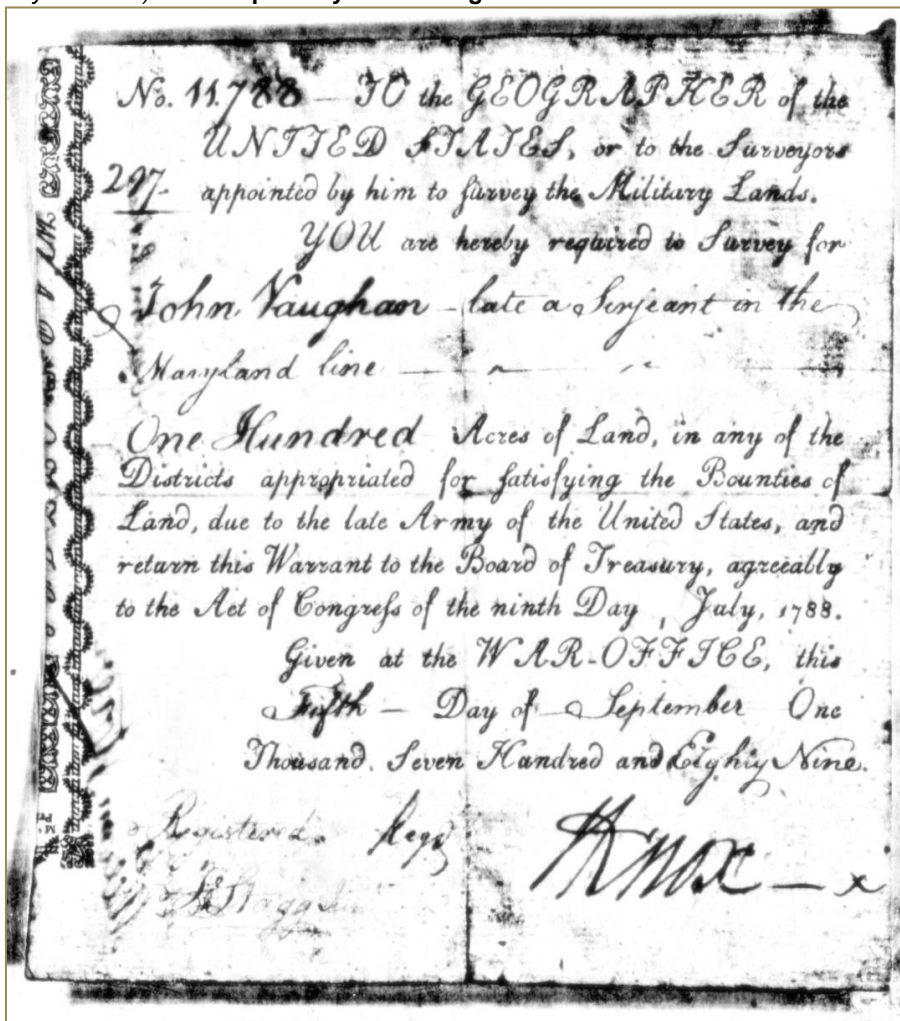 No. 11.788 — TO the GEOGRAPHER of the
UNITED STATES, or to the Surveyors
297. appointed by him to survey the Military Lands.
YOU are hereby required to Survey for
John Vaughan — late a Serjeant in the
Maryland line
One Hundred Acres of Land, in any of the
Districts appropriated for satisfying the Bounties of
Land, due to the late Army of the United States, and
return this Warrant to the Board of Treasury, agreeably
to the Act of Congress of the ninth Day, July, 1788.
Given at the WAR-OFFICE, this
Fifth — Day of September One
Thousand. Seven Hundred and Eighty Nine.
Registered
HKnox — x